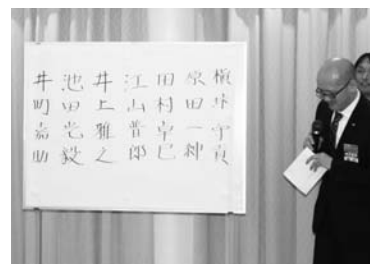 守貞
原田一
田村卓巳
江山普郎
井上雅之
池田光毅
井町嘉助